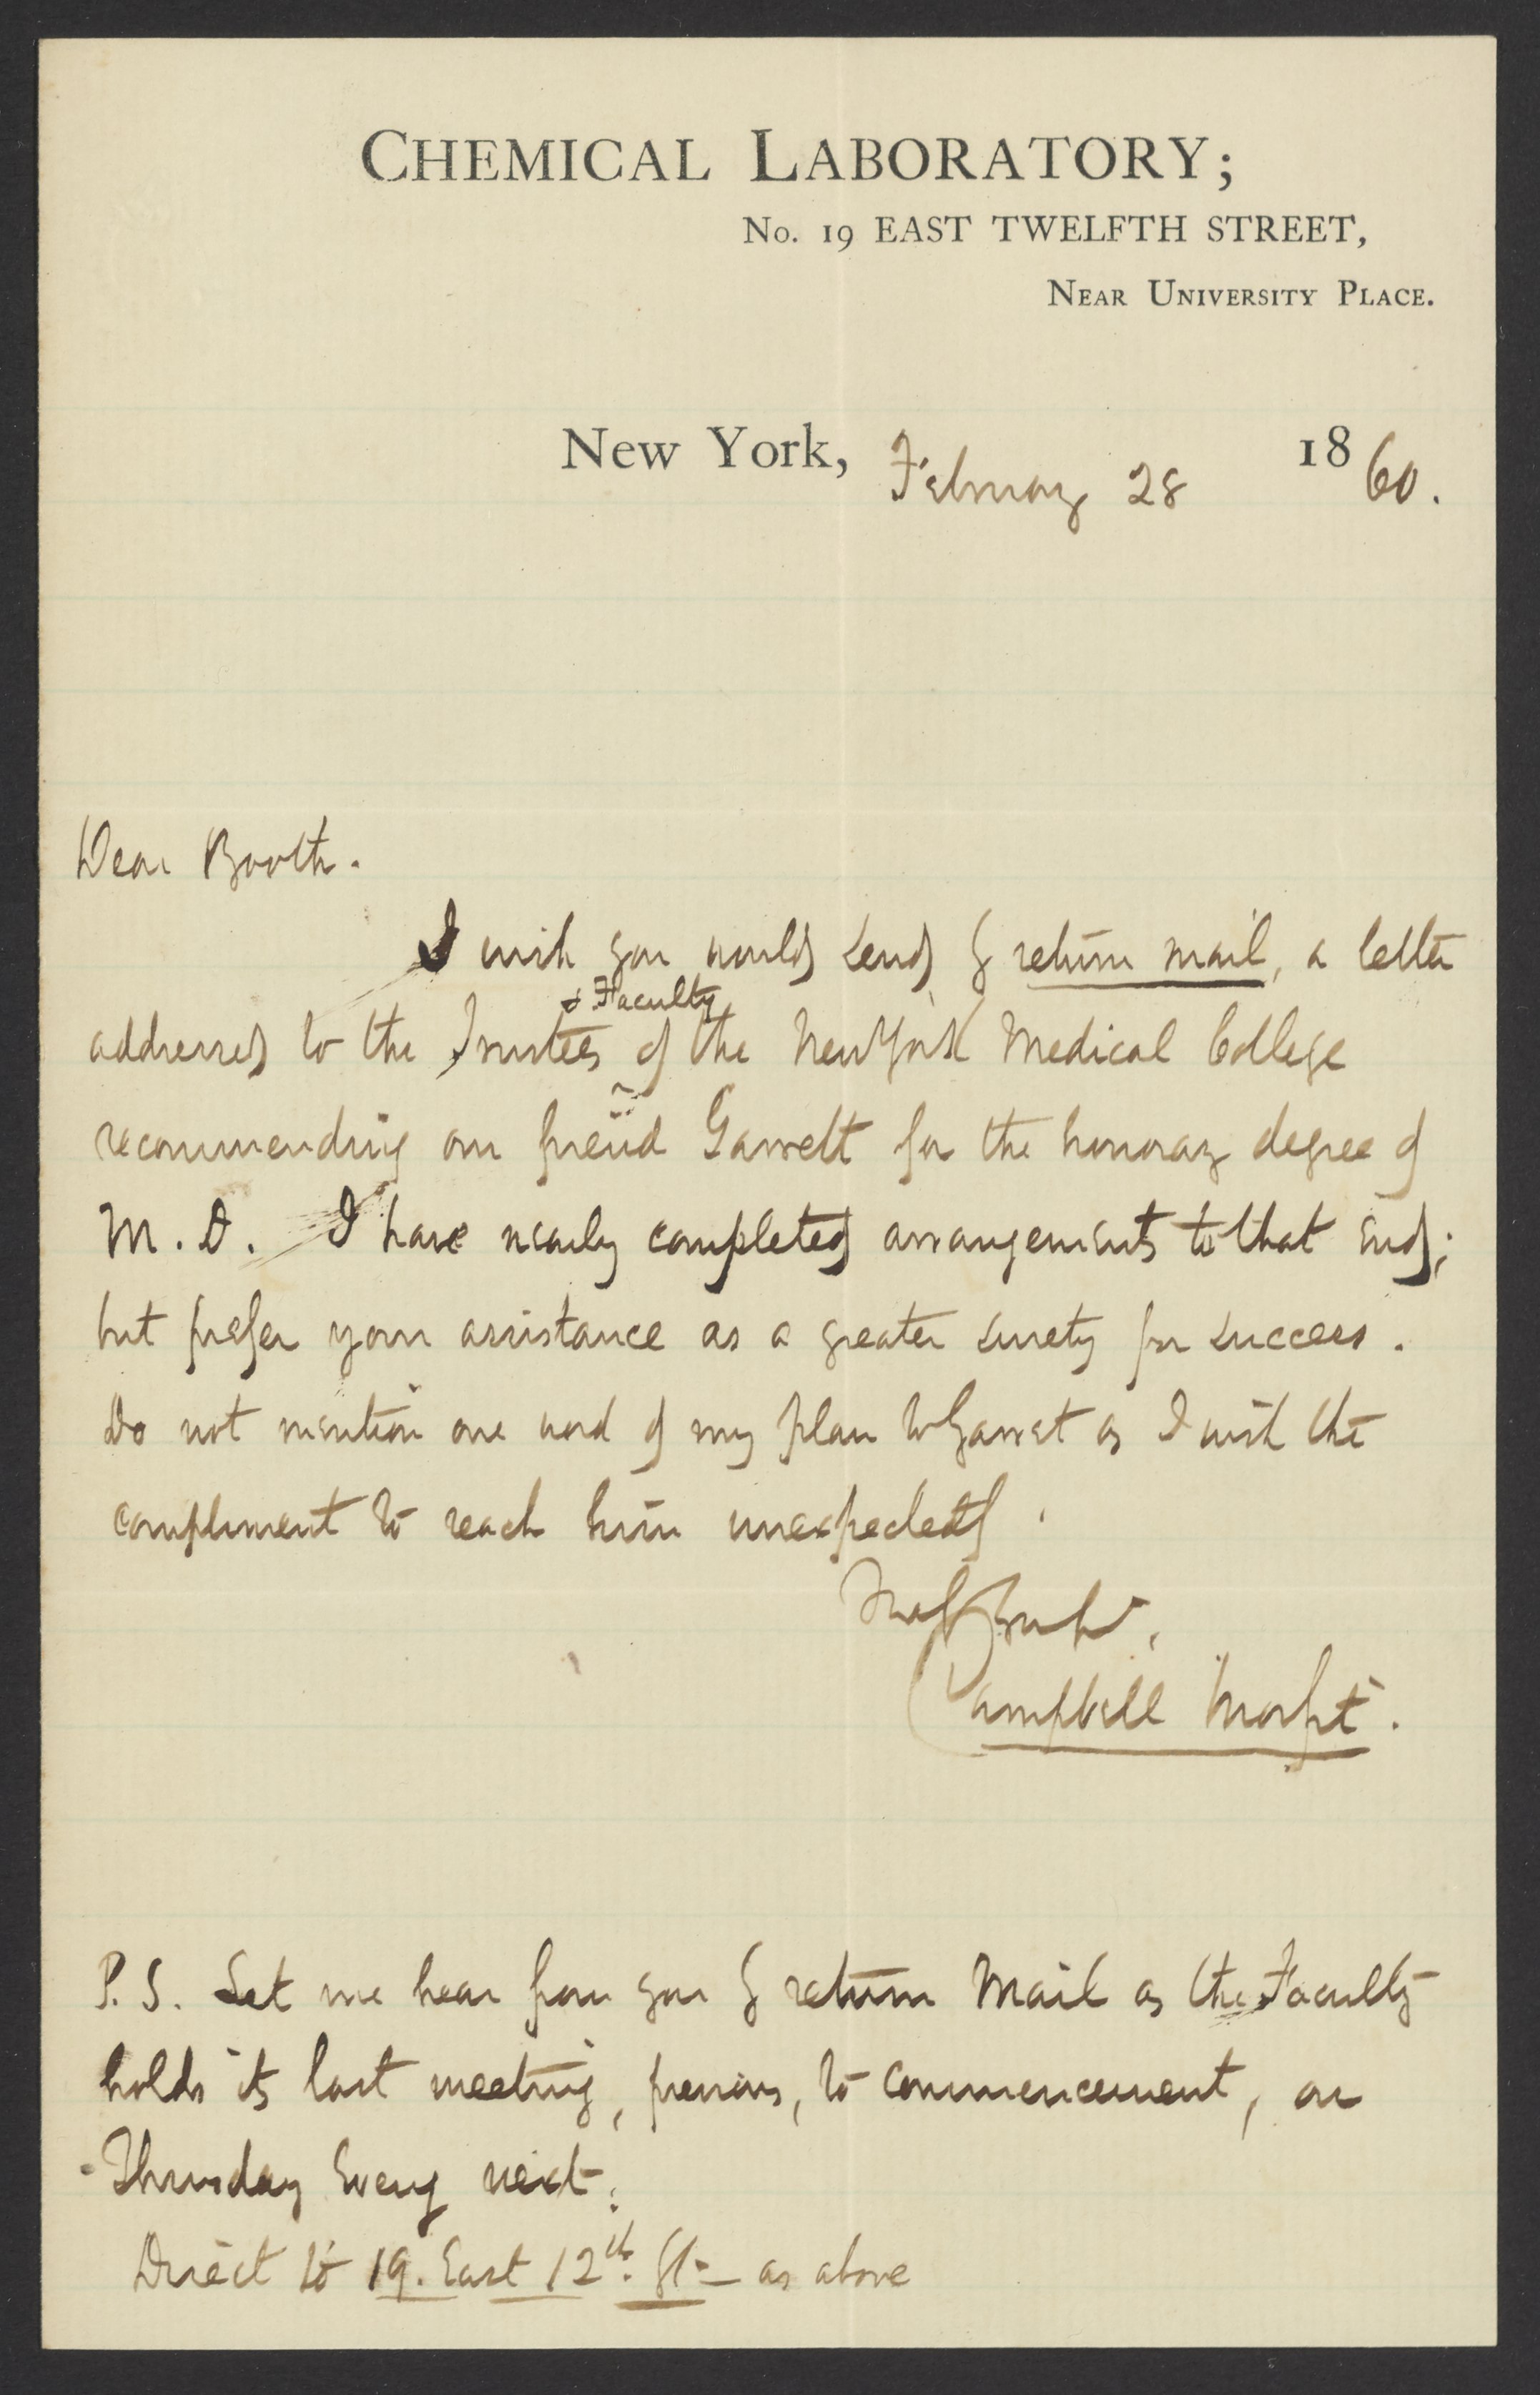 CHEMICAL LABORATORY;
No. 19 EAST TWELFTH STREET,
NEAR UNIVERSITY PLACE.
New York, February 28 1860.
Dear Booth.
I wish you would send by return mail, a letter
& Faculty
addressed to the Trustees of the New York Medical College
recommending our friend Garrett for the honorary degree of
M. D. I have nearly completed arrangements to that end;
but prefer your assistance as a greater surety for success.
Do not mention one word of my plan to Garret as I wish the
compliment to reach him unexpectedly.
Campbell Morfit.
P.S. Let me hear from you by return Mail as the Faculty
holds its last meeting, previous, to commencement, on
Thursday Eveng next.
Direct to 19. East 12th. St- as above